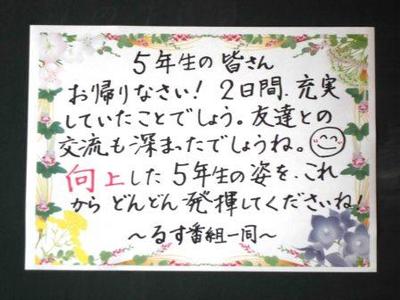 5年生の皆さん
お帰りなさい！ 2日間、充実
していたことでしょう。友達との
交流も深まったでしょうね。
向上した5年生の姿を、これ
からどんどん発揮してくださいね！
～るす番組一同～